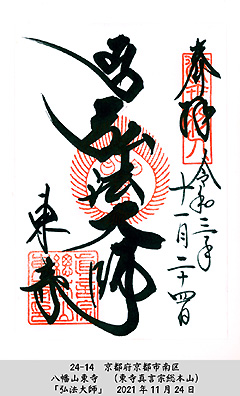 奉拝
令和三年
十一月二十四日
弘法大師
東寺
24-14 京都府京都市南区
八幡山東寺 （東寺真言宗総本山）
「弘法大師」 2021年11月24日